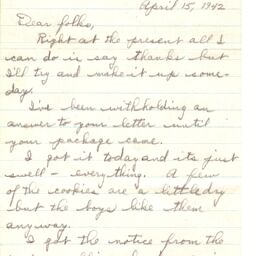 April 15, 1942
Dear folks,
Right at the present all I
can do is say thanks but
I'll try and make it up some-
day.
I've been withholding an
answer to your letter until
your package came.
I got it today and its just
swell - everything. A few
of the cookies are a little dry
but the boys like them
anyway.
I got the notice from the